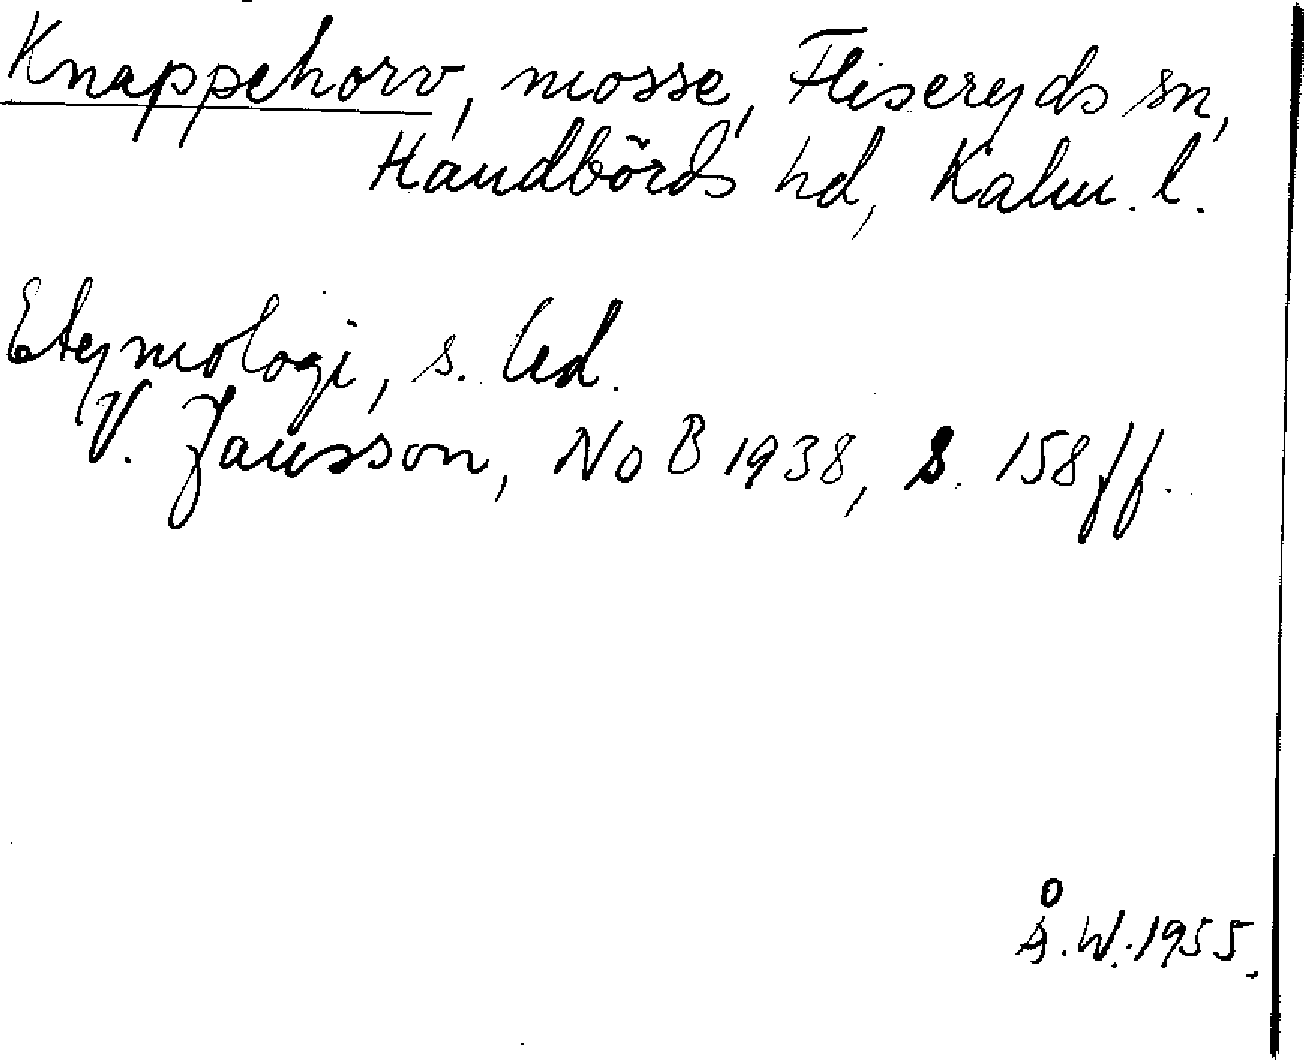 Knappehorv, mosse, Fliseryds sn,
Handbörds hd, Kalm. l.
Etymologi, s. Ud.
V. Jansson, NoB 1938, s. 158 ff.
Å.W. 1955.